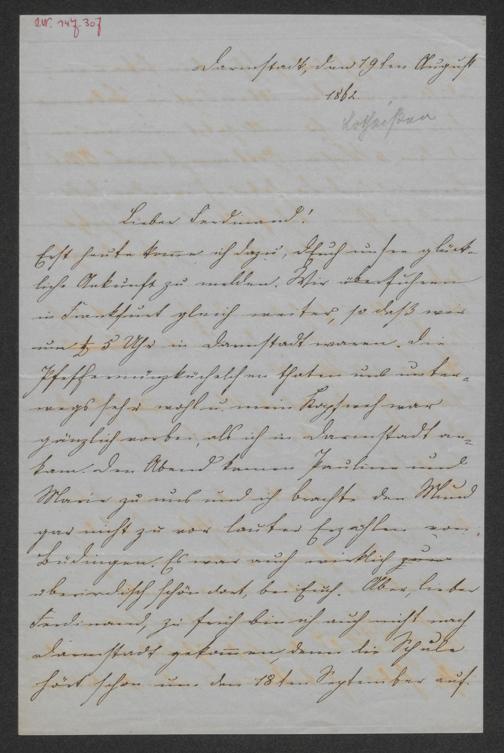 Darmstadt, den 19ten August
1862.
Lieber Ferdinand!
Erst heute komme ich dazu, Euch unsere glück-
liche Ankunft zu melden. Wir überfuhren
in Frankfurt gleich weiter, so daß wir
um ½ 5 Uhr in Darmstadt waren. Die
Pfeffermünzküchelchen thaten uns unter-
wegs sehr wohl u. mein Kopfweh war
gänzlich vorbei, als ich in Darmstadt an-
kam. Den Abend kamen Pauline und
Marie zu uns und ich brachte den Mund
gar nicht zu vor lauter Erzählen von
Büdingen. Es war auch wirklich
überirdisch schön dort, bei Euch. Aber, lieber
Ferdinand, zu früh bin ich auch nicht nach
Darmstadt gekommen, denn die Schule
hört schon um den 18ten September auf.